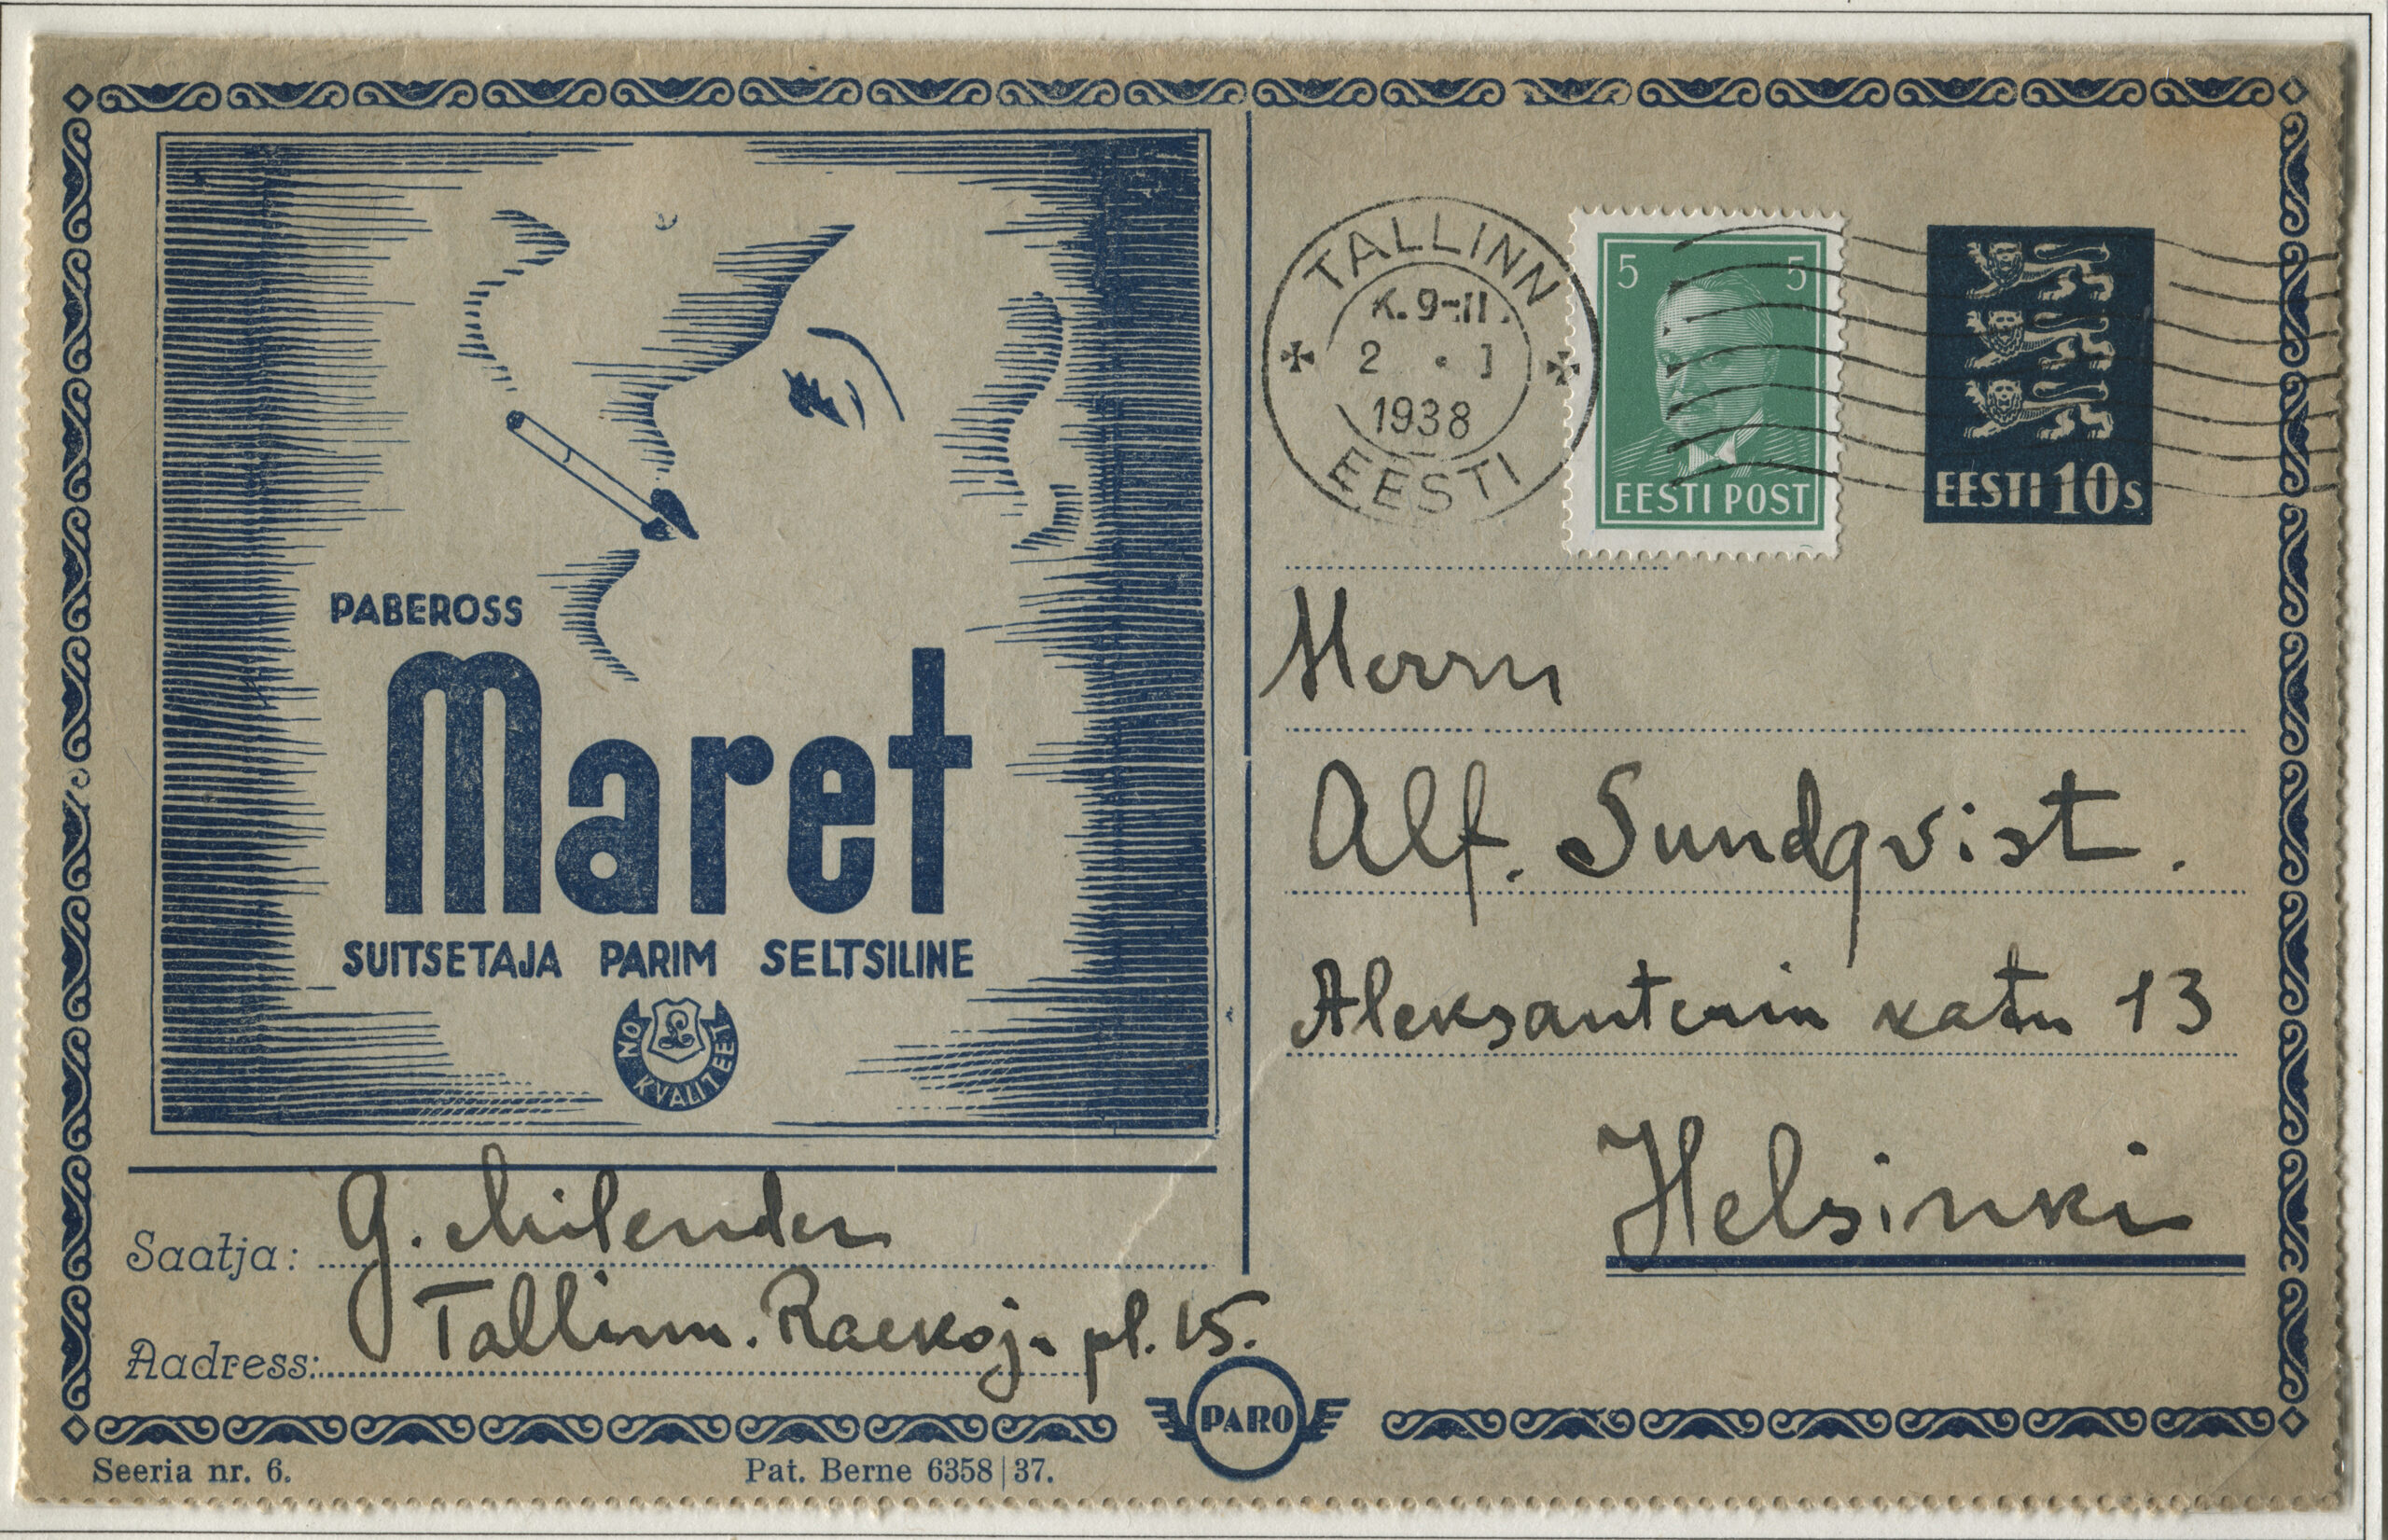 PABEROSS
Maret
SUITSETAJA PARIM SELTSILINE
ON KVALITEET
Saatja: G. Milender
Aadress: Tallinn. Raekoj. pl. 15.
TALLINN
K. 9-11.
2 • I
1938
EESTI
5 5
EESTI POST
EESTI 10s
Herrn
Alf. Sundqvist.
Aleksanterin katu 13
Helsinki
PARO
Seeria nr. 6.
Pat. Berne 6358|37.